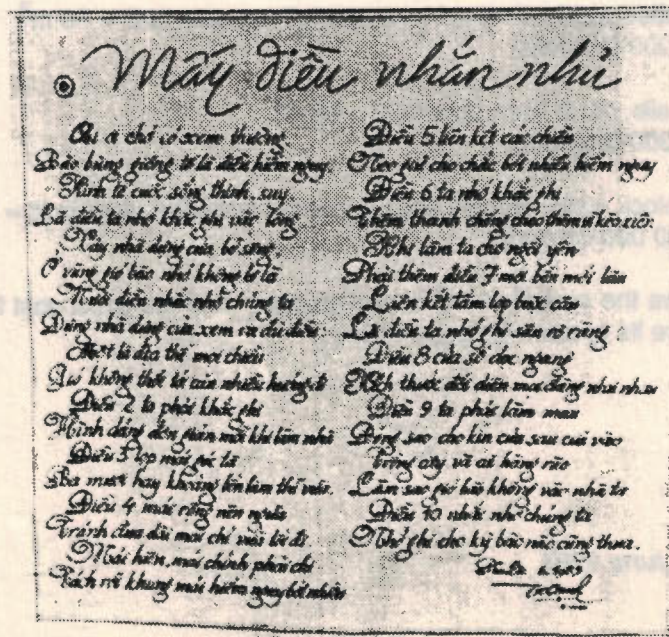 Mấy điều nhắn nhủ
Ai ơi chớ có xem thường
Bão bùng giông tố là điều hiểm nguy
Kinh tế cuộc sống thịnh, suy
Là điều ta nhớ khắc ghi vào lòng
Xây nhà dựng cửa bố sông
Ở vùng gió bão nhớ không lơ là
Mười điều nhắc nhở chúng ta
Dựng nhà dựng cửa xem ra đủ điều:
Một là địa thế mọi chiều
không thốt tả của nhiều hướng
Điều 2 ta phải khắc ghi
Hình dáng đơn giản mỗi khi làm nhà
Điều 3 lợp mái góc là
Ba mươi hay khoảng lớn hơn thế
Điều 4 mái rộng nên ngừa
Tránh đua dài mái chỉ vừa
Mái hiên, mái chính phải chi
Tách rời khung mái hiểm nguy bớt nhiều
Điều 5 liên kết các chiều
Neo giữ cho chắc bớt nhiều hiểm nguy
Điều 6 ta nhớ khắc ghi
Thêm thanh chống chéo thêm vì kèo
Khi làm ta chớ ngồi yên
Phải thêm điều 7 mọi bên mới lâu
Liên kết tấm lợp buộc câu
Là điều ta nhớ ghi sâu
Điều 8 cửa sổ dọc ngang
Kích thước đối diện như nhau
Điều 9 ta phải làm mau
Đóng sao cho kín cửa sau cửa vào
Trồng cây và cả hàng rào
Làm sao gió bão không vào nhà ta
Điều 10 nhắc nhở chúng ta
Nhớ ghi cho kỹ bão nào cũng thua.